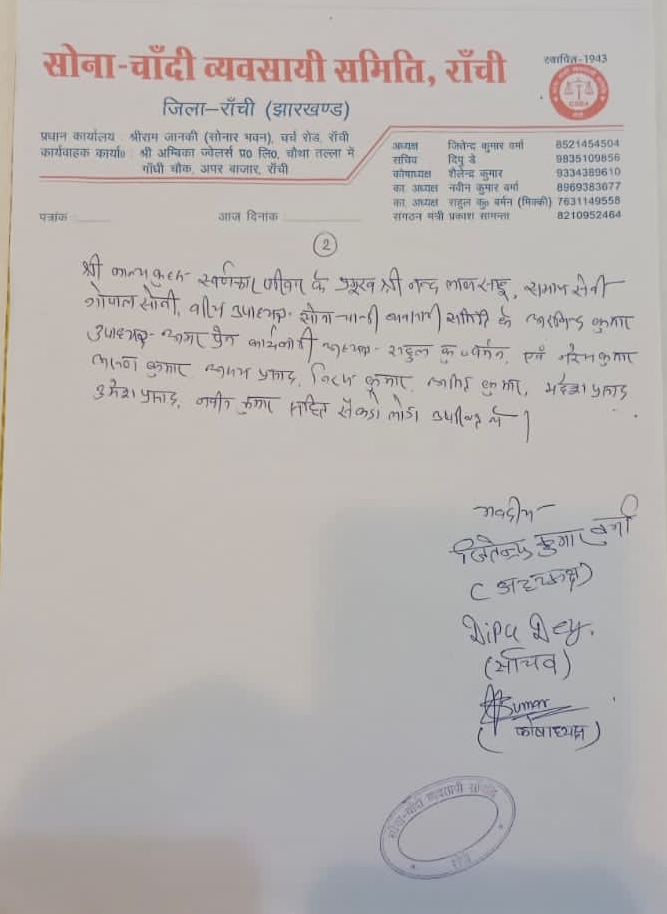 सोना-चाँदी व्यवसायी समिति, राँची
स्थापित-1943
जिला-राँची (झारखण्ड)
प्रधान कार्यालय : श्रीराम जानकी (सोनार भवन), चर्च रोड, राँची
कार्यवाहक कार्या० : श्री अम्बिका ज्वेलर्स प्रा० लि०, चौथा तल्ला में
गाँधी चौक, अपर बाजार, राँची
अध्यक्ष जितेन्द्र कुमार वर्मा 8521454504
सचिव दिपु डे 9835109856
कोषाध्यक्ष शैलेन्द्र कुमार 9334389610
का. अध्यक्ष नवीन कुमार वर्मा 8969383677
का. अध्यक्ष राहुल कु० बर्मन (मिक्की) 7631149558
संगठन मंत्री प्रकाश सामन्ता 8210952464
पत्रांक :
आज दिनांक :
2
श्री स्वर्णकार के प्रमुख श्री नन्द लाल साहू, समाज सेवी
गोपाल सोनी, उपाध्यक्ष- सोना-चाँदी समिति के कुमार
उपाध्यक्ष- प्रेम राहुल कु० बर्मन, एवं कुमार
कुमार प्रसाद, कुमार, कुमार, महेश प्रसाद
उमेश प्रसाद, नवीन कुमार सहित सैकड़ो लोग उपस्थित थे।
भवदीय
जितेन्द्र कुमार वर्मा
(अध्यक्ष)
Dipu Dey.
(सचिव)
Kumar
(कोषाध्यक्ष)
सोना-चाँदी व्यवसायी समिति
राँची